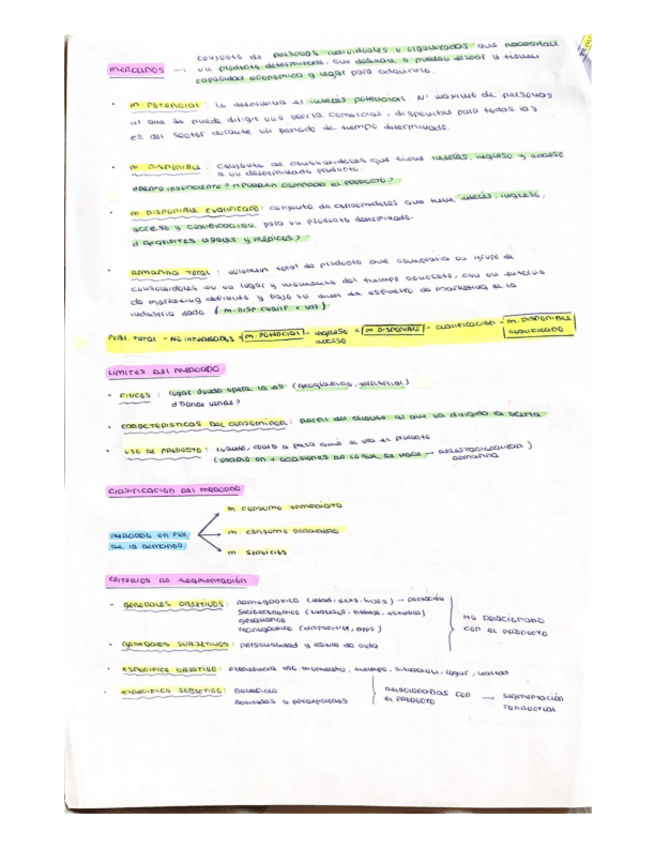 conjunto de personas individuales u organizadas que necesitan
MERCADOS → un producto determinado, que desean o pueden desear y tienen
capacidad económica y legal para adquirirlo.
• M. POTENCIAL: lo determina el interés potencial. Nº máximo de personas
al que se puede dirigir una oferta comercial, disponible para todas las
es del sector durante un periodo de tiempo determinado.
• M. DISPONIBLE: conjunto de consumidores que tienen interés, ingreso y acceso
a un determinado producto.
• M. DISPONIBLE CUALIFICADO: conjunto de consumidores que tiene interés, ingreso,
acceso y cualificación para un producto determinado.
¿REQUISITOS LEGALES Y MÉDICOS?
• DEMANDA TOTAL: volumen total de producto que compraría un grupo de
consumidores en un lugar y momento del tiempo concreto, con un entorno
de marketing definido y bajo un nivel de esfuerzo de marketing de la
industria dado
POBL. TOTAL - NO INTERESADOS = M. POTENCIAL - ingreso = M. DISPONIBLE - CUALIFICACIÓN = M. DISPONIBLE
acceso CUALIFICADO
LIMITES DEL MERCADO
• FISICOS: lugar donde opera la es (geográfico, territorial)
¿Dónde vendes?
• CARACTERISTICAS DEL CONSUMIDOR: perfil del cliente al que va dirigida la oferta
• USO DE PRODUCTO: cuánto, cómo y para qué se usa el producto
(usarlo en + ocasiones de lo que se hace → DESESTACIONALIZAR)
DEMANDA
CLASIFICACIÓN DEL MERCADO
M. CONSUMO INMEDIATO
MERCADO EN FUN M. CONSUMO DURADERO
DE LA DEMANDA
M. SERVICIOS
CRITERIOS DE SEGMENTACIÓN
• GENERALES OBJETIVOS: DEMOGRÁFICO (edad, sexo, hijos) → población
Socioeconómico (ingresos, trabajo, estudios) NO RELACIONADO
GEOGRÁFICO CON EL PRODUCTO
TECNOGRÁFICO (dispositivos, apps)
• GENERALES SUBJETIVOS: personalidad y estilo de vida
• ESPECIFICO OBJETIVO: Frecuencia uso, momento, tiempo, situación, lugar, lealtad
• ESPECIFICO SUBJETIVO: Beneficio RELACIONADAS CON → SEGMENTACIÓN
Actitudes y percepciones EL PRODUCTO CONDUCTUAL